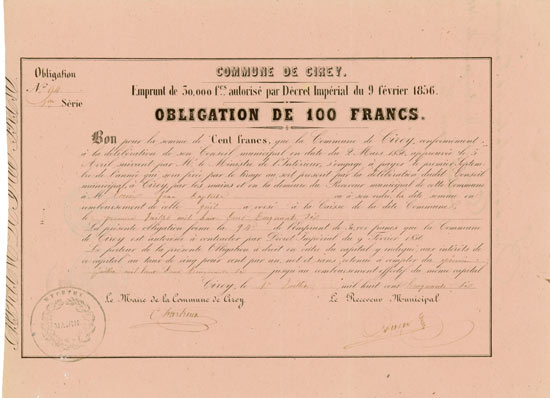 COMMUNE DE CIREY.
Obligation
N° 94
Série
Emprunt de 30,000 fcs autorisé par Décret Impérial du 9 février 1856.
OBLIGATION DE 100 FRANCS.
Bon pour la somme de Cent francs, que la Commune de Cirey, conformément
à la délibération de son Conseil municipal en date du 2 Mars 1856, approuvée le 5
Avril suivant par Mr le Ministre de l'Intérieur, s'engage à payer le premier
de l'année qui sera fixée par le tirage au sort prescrit par la délibération dudit Conseil
municipal, à Cirey, par les mains et en la demeure du Receveur municipal de cette Commune
à Mr ou à son ordre, la dite somme en
remboursement de celle versée à la Caisse de la dite Commune
le premier Juillet mil huit cent cinquante six
La présente obligation forme la 94e de l'emprunt de francs que la Commune
de Cirey est autorisée à contracter par Décret Impérial du 9 février 1856
Le porteur de la présente Obligation a droit en outre du capital y indiqué, aux intérêts de
ce capital au taux de cinq pour cent par an, net et sans retenue à compter du premier
Juillet mil huit cent cinquante six jusqu'au remboursement effectif du même capital
Cirey, le Juillet mil huit cent cinquante six
Le Maire de la Commune de Cirey
Le Receveur Municipal
MAIRIE